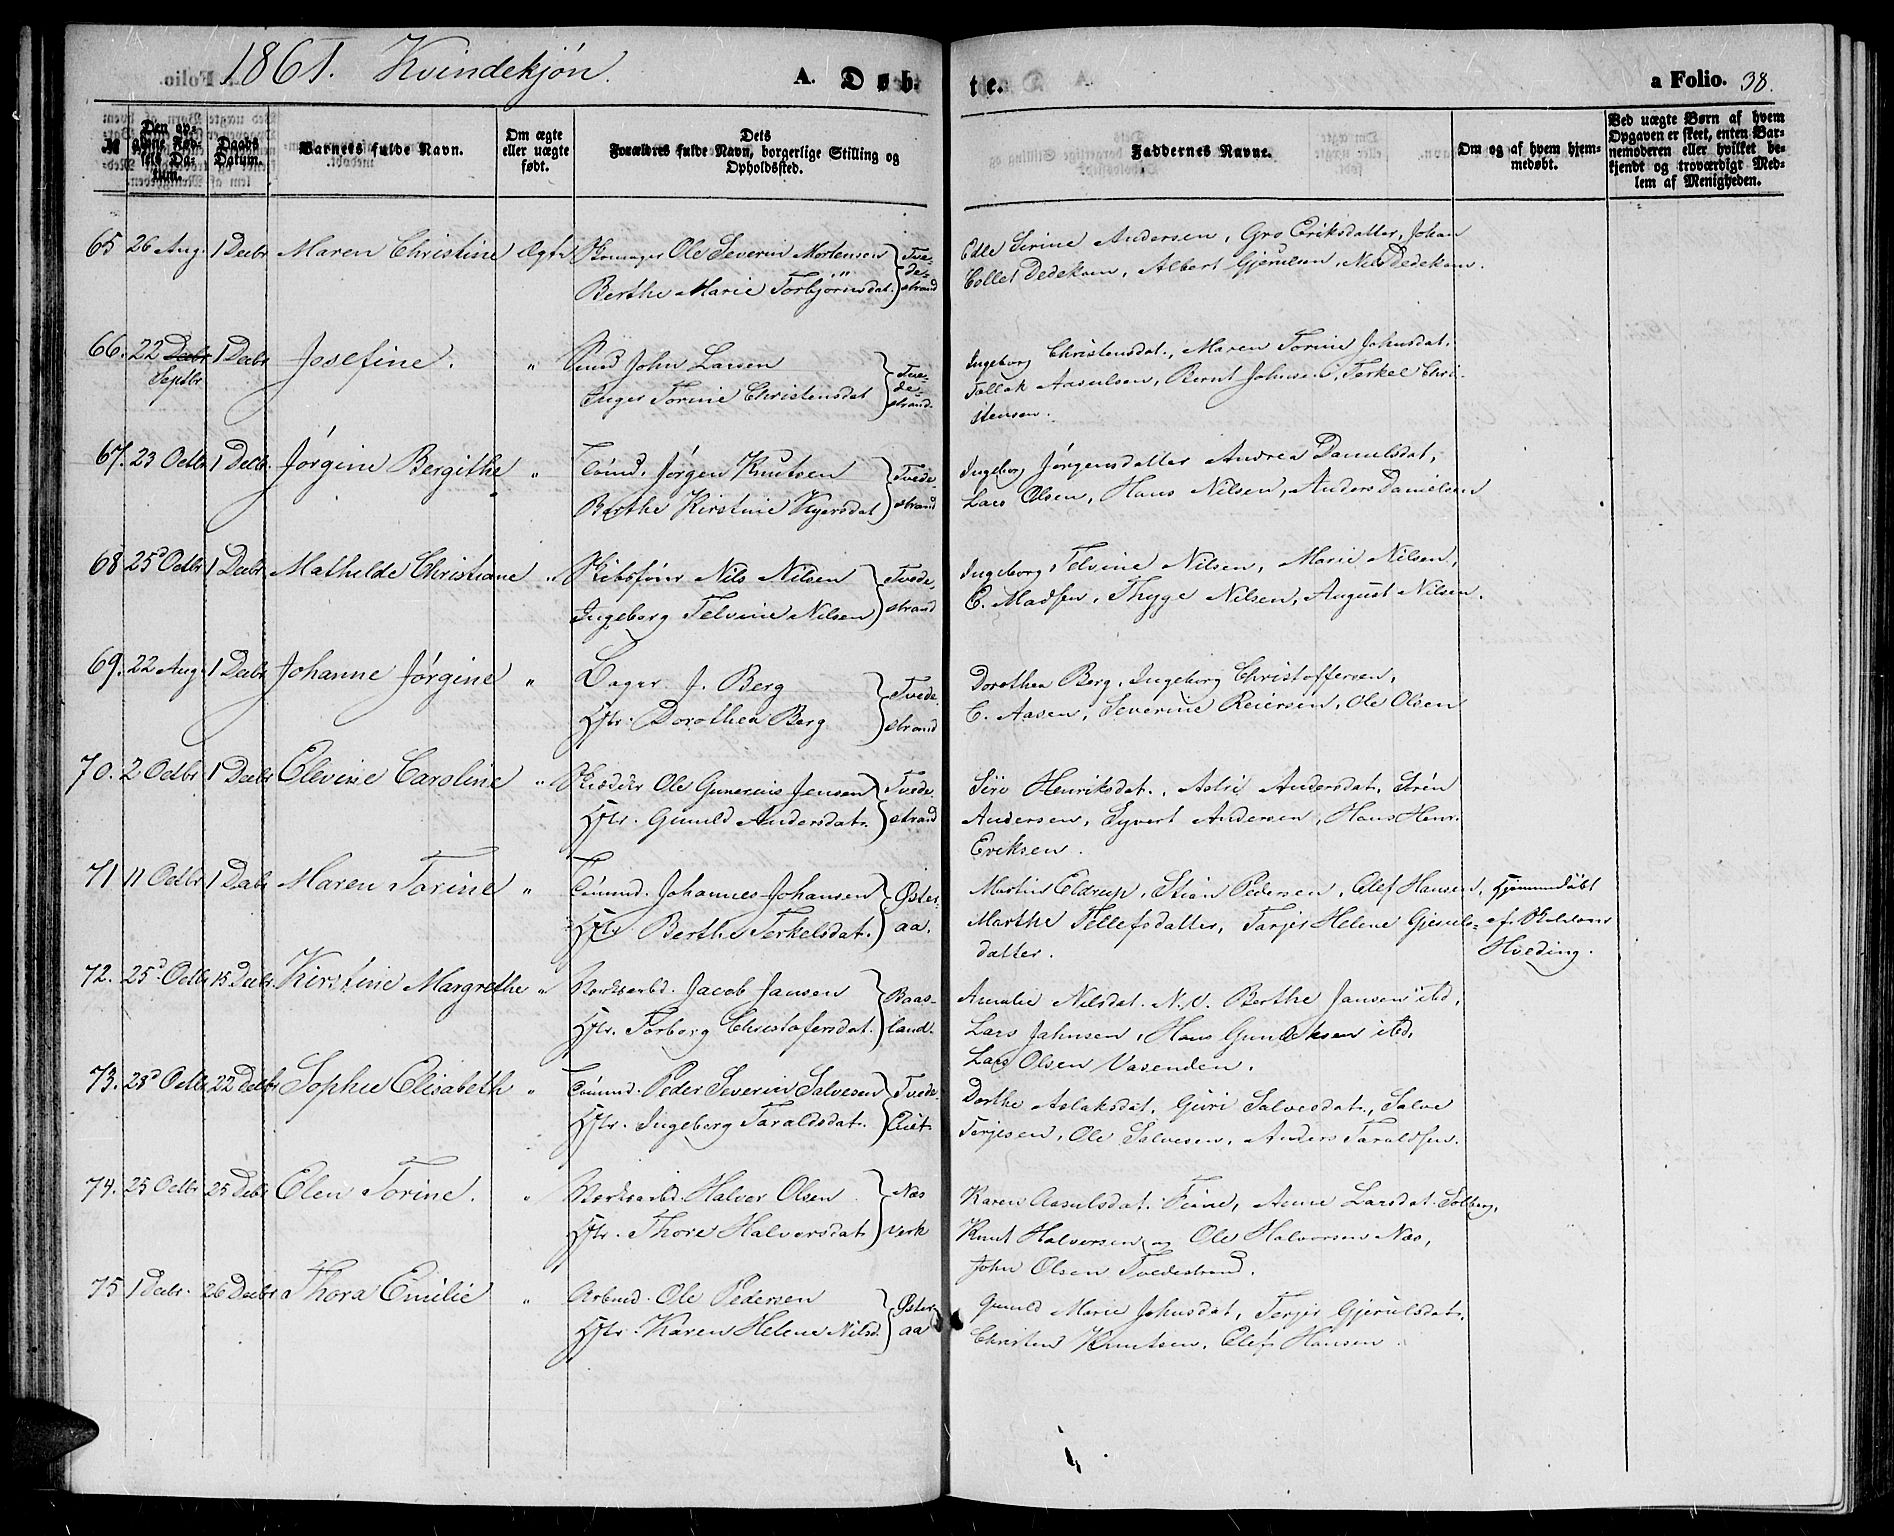 1861. Kvindekjön.
A. Døbte.
a Folio. 38.
№
Den opgivne Fødsels Datum.
Daabs Datum.
Barnets fulde Navn.
Om ægte eller uægte født.
Dets Forældres fulde Navn, borgerlige Stilling og Opholdssted.
Faddernes Navne.
Om og af hvem hjemmedøbt.
Ved uægte Børn af hvem Opgaven er skeet, enten Barnemoderen eller hvilket bekjendt og troværdigt Medlem af Menigheden.
65 26 Aug. 1 Decbr Maren Christine Ægte Skomager Ole Severin Mortensen Tvede-
Berthe Marie Torbjørnsdat. strand
Edle Serine Andersen, Gro Eriksdatter, Johan
Collet Dedekam, Albert Gjerulsen, Nils Dedekam.
66. 22 Decbr 1 Decbr Josefine. " Smed John Larsen Tve-
Septbr Inger Torine Christensdat de-strand.
Ingeborg Christensdat., Maren Torine Johnsdat.
Tellak Aasulsen, Bernt Johnsen, Terkel Chri-
stensen.
67. 23 Octbr 1 Decbr. Jørgine Bergithe " Tømd. Jørgen Knutsen Tvede-
Berthe Kirstine Kyersdat strand
Ingeborg Jørgensdatter Andrea Danielsdat,
Lars Olsen, Hans Nilsen, Anders Danielsen
68 25d Octbr 1 Decbr Mathilde Christiane " Skibsfører Nils Nilsen Tvede-
Ingeborg Telvine Nilsen strand
Ingeborg Telvine Nilsen, Marie Nilsen,
C. Madsen, Thyge Nilsen, August Nilsen.
69. 22 Aug. 1 Decbr Johanne Jørgine " Bager J. Berg Tvede
Hstr. Dorothea Berg strand
Dorothea Berg, Ingeborg Christoffersen,
C. Aasen, Severine Reiersen, Ole Olsen
70. 2 Octbr 1 Decbr Elevine Caroline " Ole Gunerius Jensen Tvede
Hstr. Gunild Andersdat. strand
Siri Henriksdat., Astri Andersdat.
Andersen, Syvert Andersen, Hans Henr.
Eriksen.
71 11 Octbr 1 Decbr Maren Torine " Tømmd. Johannes Johansen Øster-
Hstr Berthe Terkelsdat. aa.
Martin Eldrup, Stian Pedersen, Olef Hansen,
Marthe Tellefsdatter, Tarjer Helene Gjeruls-
datter.
Hjemmedøbt
af
Hveding.
72. 25d Octbr 15 Decbr. Kirstine Margrethe " Verksarbd. Jacob Jansen Baas-
Hstr. Torborg Christofersdat. land.
Amalie Nilsdat. N.V. Berthe Jansen ibd,
Lars Jahnsen, Hans Gundersen ibd,
Lars Olsen Vasenden.
73. 28d Octbr 22 Decbr Sophie Elisabeth " Tømmd. Peder Severin Salvesen Tvede
Hstr. Ingeborg Taraldsdat.
Dorthe Aslaksdat. Guri Salvesdat., Salve
Terjesen, Ole Salvesen, Anders Taraldsen.
74. 25 Octbr 25 Decbr Elen Torine. " Verksarbd. Halvor Olsen Næs
Hstr. Thore Halvorsdat. Verk
Karen Aasulsdat. Anne Larsdat. Solberg,
Knut Halvorsen og Ole Halvorsen Næs,
John Olsen Tvedestrand.
75 1 Decbr. 26 Decbr Thora Emilie " Arbmd. Ole Pedersen Øster-
Hstr. Karen Helene Nilsd. aa
Gunild Marie Johnsdat, Terjer Gjerulsdat.
Christen Knutsen, Olef Hansen.